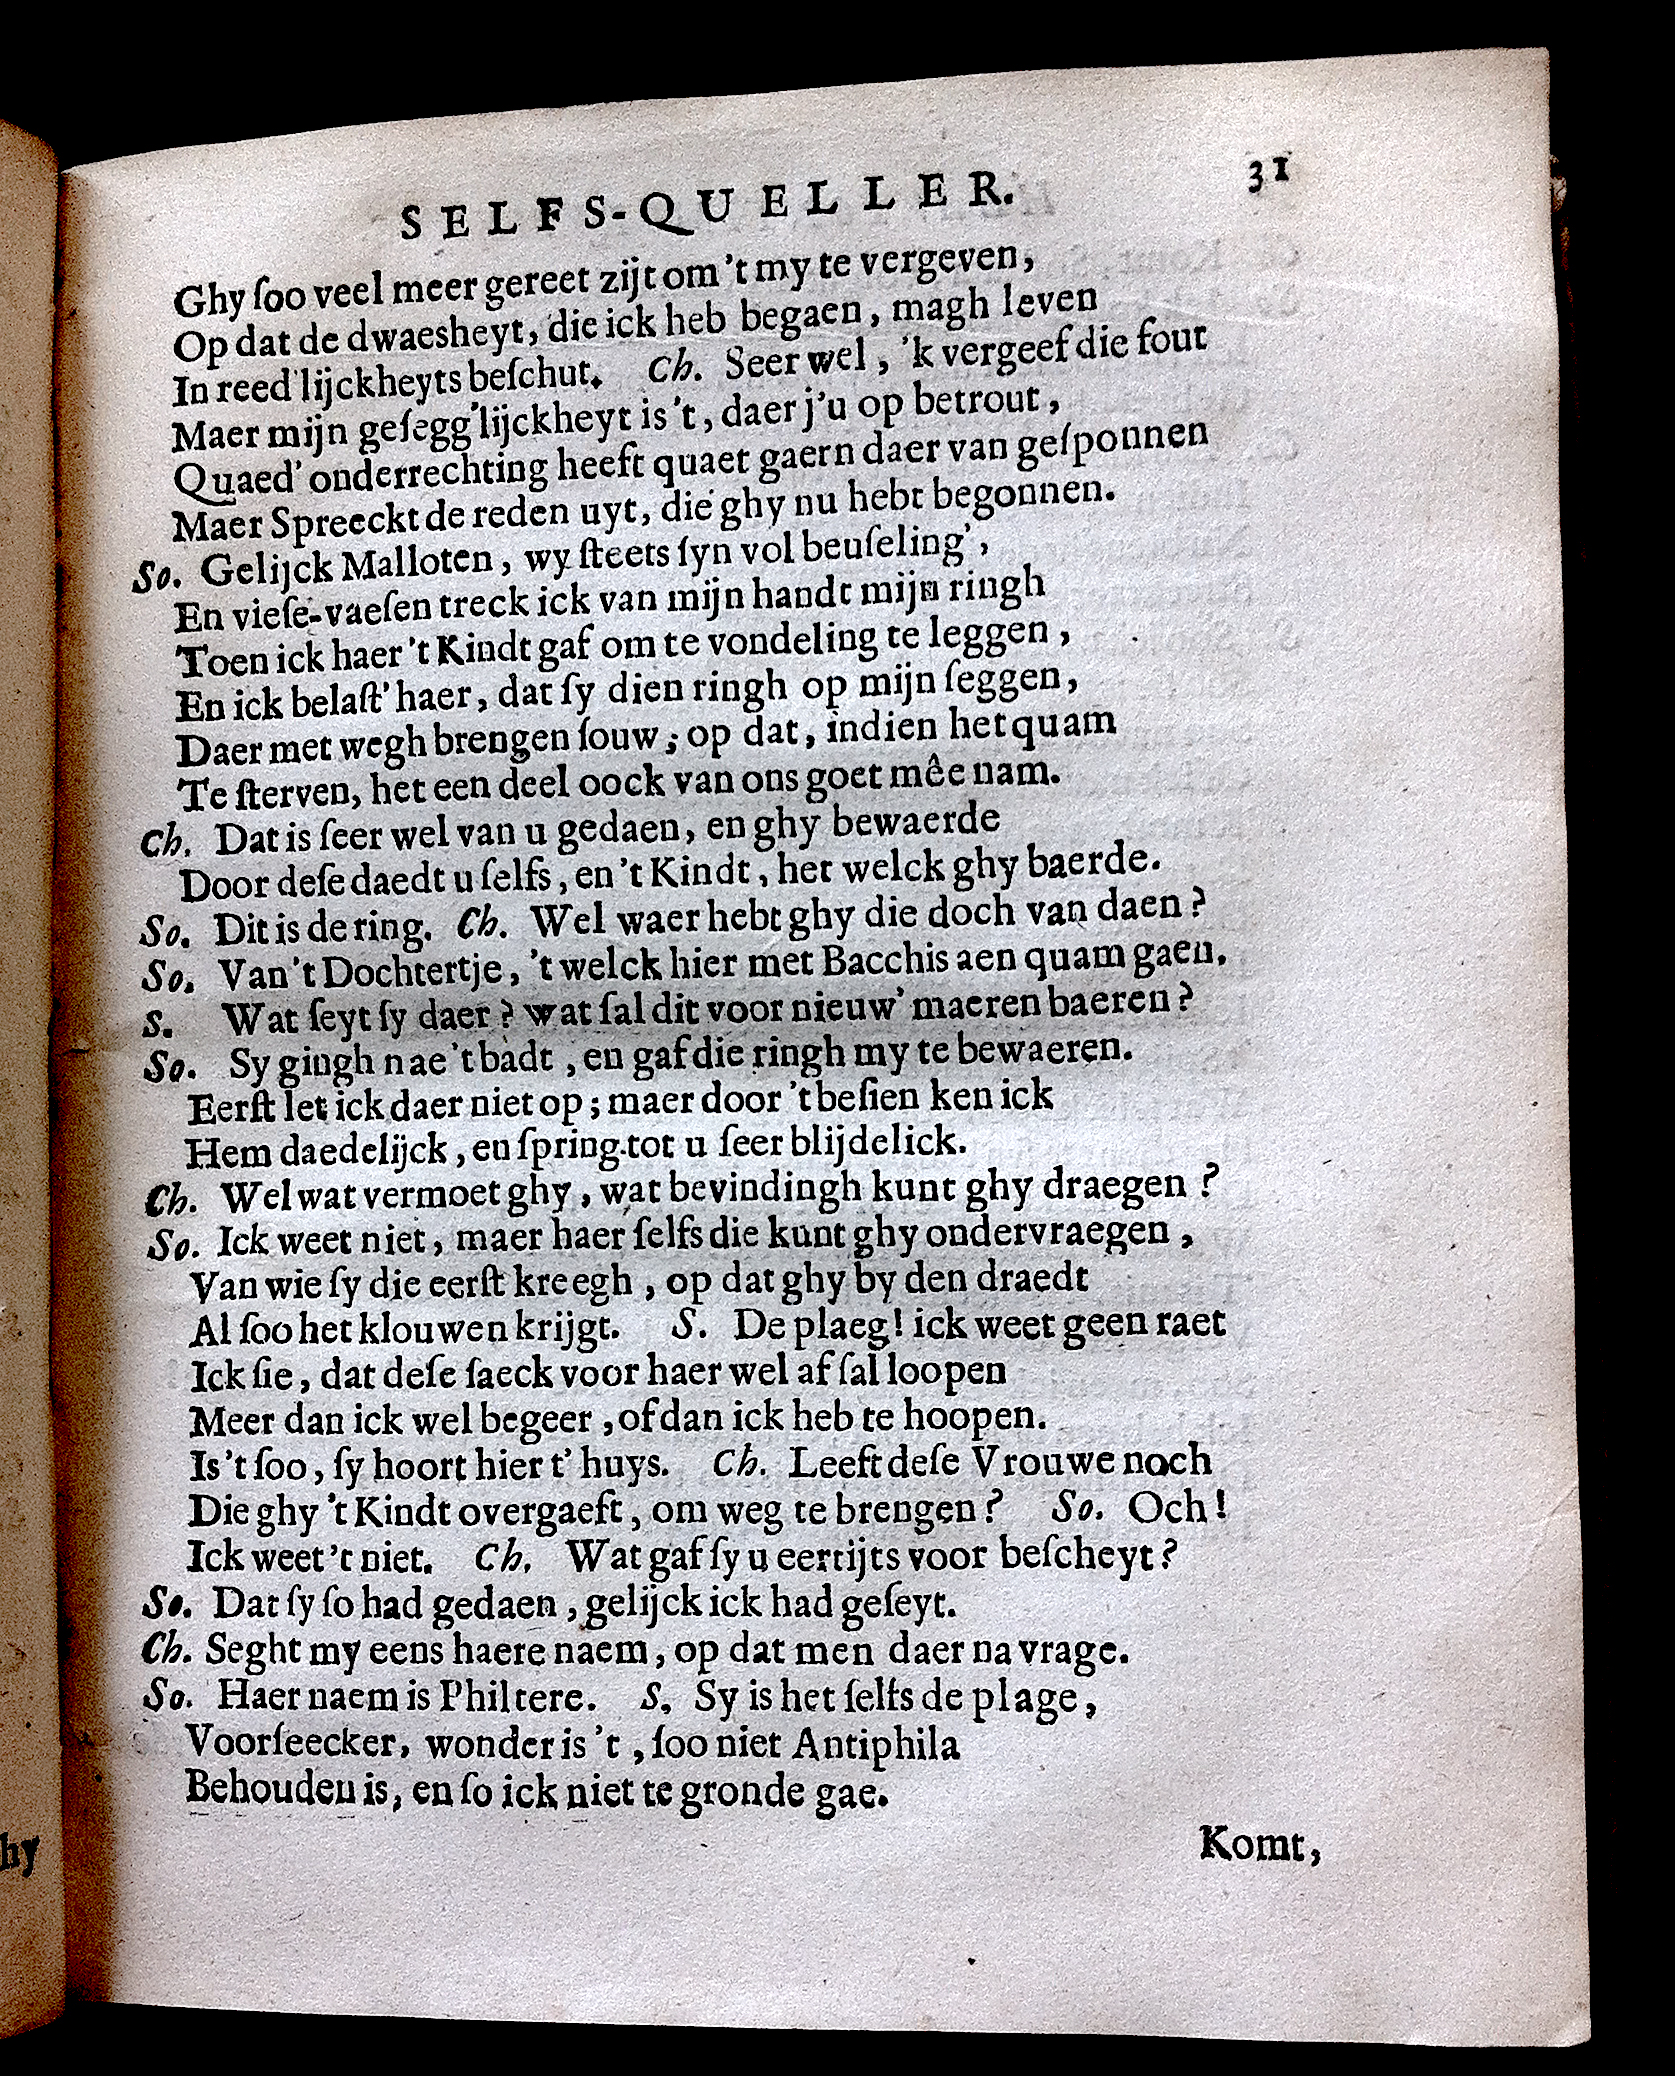 SELFS-QUELLER. 31
Ghy ſoo veel meer gereet zijt om 't my te vergeven,
Op dat de dwaesheyt, die ick heb begaen, magh leven
In reed'lijckheyts beſchut. Ch. Seer wel, 'k vergeef die fout
Maer mijn geſegg'lijckheyt is 't, daer j'u op betrout,
Quaed' onderrechting heeft quaet gaern daer van geſponnen
Maer Spreeckt de reden uyt, die ghy nu hebt begonnen.
So. Gelijck Malloten, wy ſteets ſyn vol beuſeling',
En vieſe-vaeſen treck ick van mijn handt mijn ringh
Toen ick haer 't Kindt gaf om te vondeling te leggen,
En ick belaſt' haer, dat ſy dien ringh op mijn ſeggen,
Daer met wegh brengen ſouw; op dat, indien het quam
Te ſterven, het een deel oock van ons goet mêe nam.
Ch. Dat is ſeer wel van u gedaen, en ghy bewaerde
Door deſe daedt u ſelfs, en 't Kindt, het welck ghy baerde.
So. Dit is de ring. Ch. Wel waer hebt ghy die doch van daen?
So. Van 't Dochtertje, 't welck hier met Bacchis aen quam gaen.
S. Wat ſeyt ſy daer? wat ſal dit voor nieuw' maeren baeren?
So. Sy gingh nae 't badt, en gaf die ringh my te bewaeren.
Eerſt let ick daer niet op; maer door 't beſien ken ick
Hem daedelijck, en ſpring tot u ſeer blijdelick.
Ch. Wel wat vermoet ghy, wat bevindingh kunt ghy draegen?
So. Ick weet niet, maer haer ſelfs die kunt ghy ondervraegen,
Van wie ſy die eerſt kreegh, op dat ghy by den draedt
Al ſoo het klouwen krijgt. S. De plaeg! ick weet geen raet
Ick ſie, dat deſe ſaeck voor haer wel af ſal loopen
Meer dan ick wel begeer, of dan ick heb te hoopen.
Is 't ſoo, ſy hoort hier t' huys. Ch. Leeft deſe Vrouwe noch
Die ghy 't Kindt overgaeft, om weg te brengen? So. Och!
Ick weet 't niet. Ch. Wat gaf ſy u eertijts voor beſcheyt?
So. Dat ſy ſo had gedaen, gelijck ick had geſeyt.
Ch. Seght my eens haere naem, op dat men daer na vrage.
So. Haer naem is Philtere. S. Sy is het ſelfs de plage,
Voorſeecker, wonder is 't, ſoo niet Antiphila
Behouden is, en ſo ick niet te gronde gae.
Komt,
hy